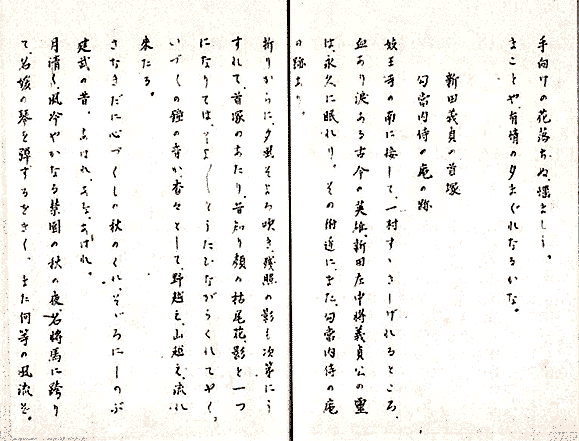 手向けの花落ちぬ煙まじり。
まことや、有情の夕まぐれなるかな。
新田義貞の首塚
勾當内侍の庵の跡
妓王寺の南に接して、一村すゝきしげれるところ、
血あり涙ある古今の英雄、新田左中將義貞公の靈
は、永久に眠れり。その附近に、また、勾當内侍の庵
の跡あり。
折りからに、夕風そよろ吹き、殘照の影も次第にう
すれて首塚のあたり、昔知り顔の枯尾花、影と一つ
になりては、そよ〳〵とうたひながらくれてゆく。
いづくの鐘の音か、杳々として、野越え、山越え、流れ
來たる。
さなきだに心づくしの秋のくれ、そゞろにしのぶ
建武の昔。あはれ、あな、あはれ。
月清く風冷やかなる禁園の秋の夜、若將馬に跨り
て、名媛の琴を彈ずるをきく。また何等の風流ぞ。